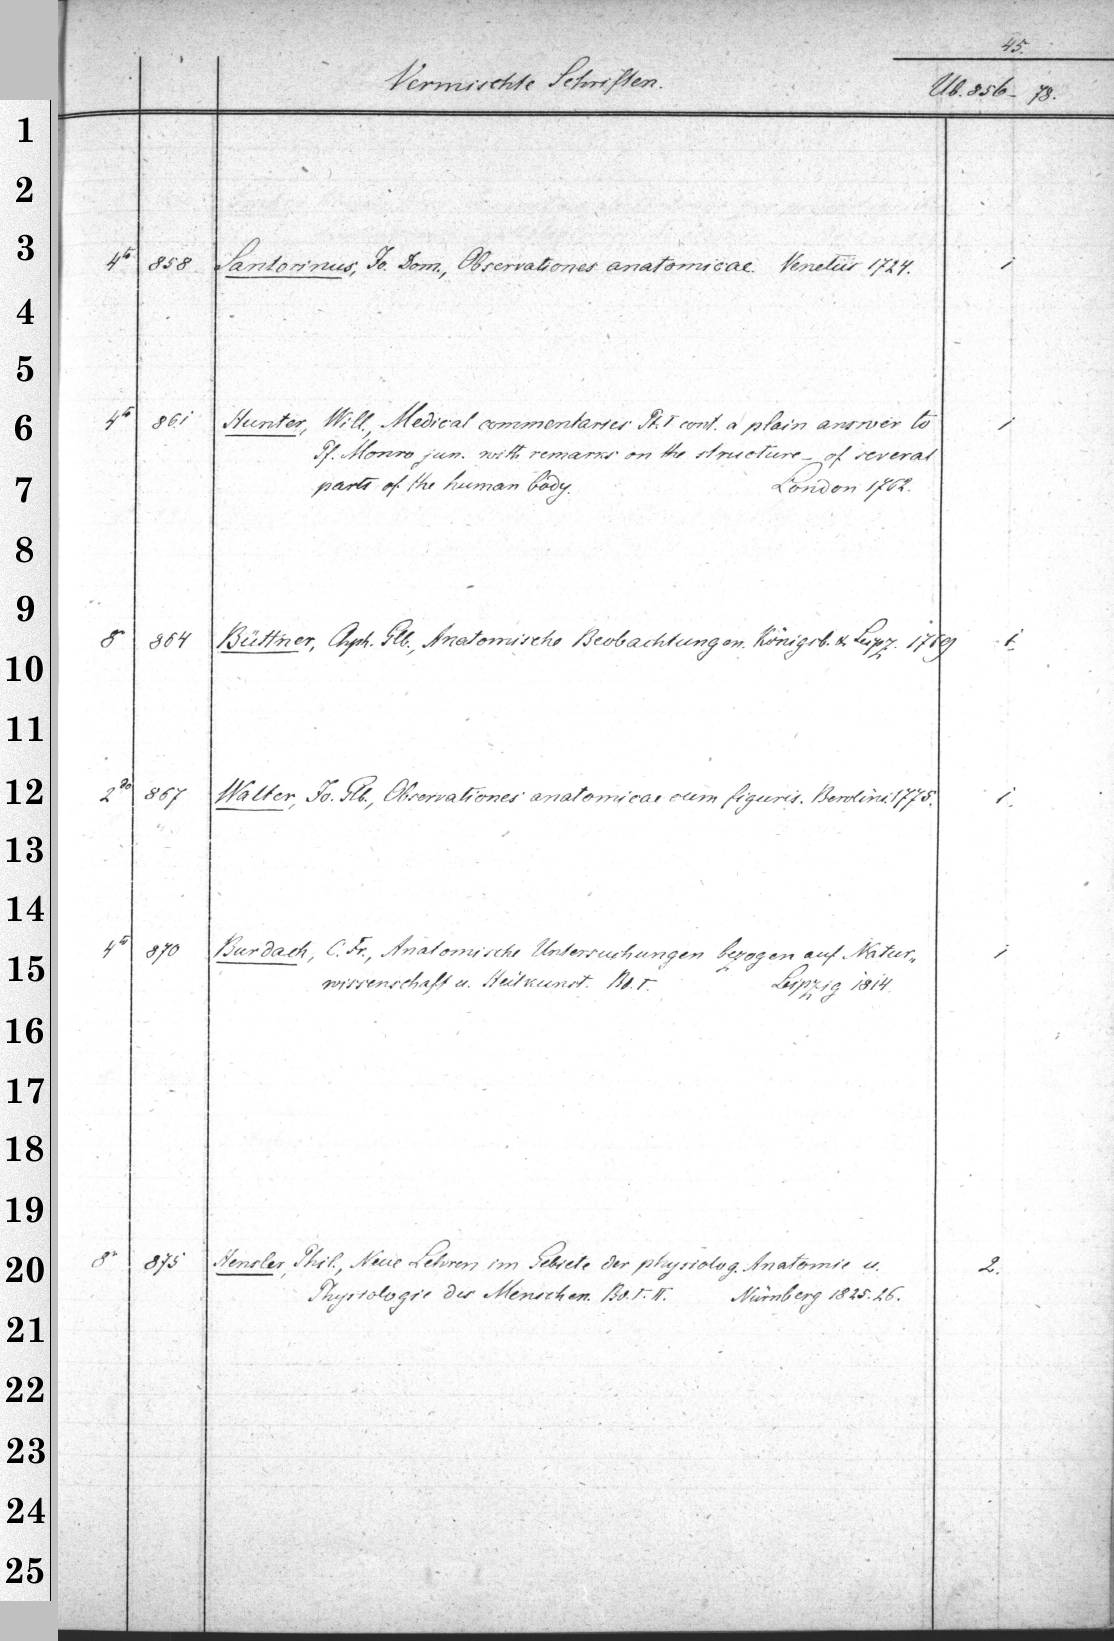 45.
Vermischte Schriften. Ub. 856 - 78.
1
2
3
4to 858 Santorinus, Jo. Dom., Observationes anatomicae. Venetiis 1724. 1
4
5
6
4to 861 Hunter, Will., Medical commentaries Pt. I cont. a plain answer to 1
Pf. Monro jun. with remarks on the structure - of several
7
parts of the human body. London 1762.
8
9
8o 864 Büttner, Chph. Glb., Anatomische Beobachtungen. Königsb. & Leipz. 1769 1.
10
11
12
2do 867 Walter, Jo. Glb., Observationes anatomicae cum figuris. Berolini. 1775. 1.
13
14
4to 870 Burdach, C. Fr., Anatomische Untersuchungen bezogen auf Natur„ 1
15
wissenschaft u. Heilkunst. Bd. I. Leipzig 1814.
16
17
18
19
8o 875 Hensler, Phil., Neue Lehren im Gebiete der physiolog. Anatomie u. 2.
20
Physiologie des Menschen. Bd. I. II. Nürnberg 1825. 26.
21
22
23
24
25